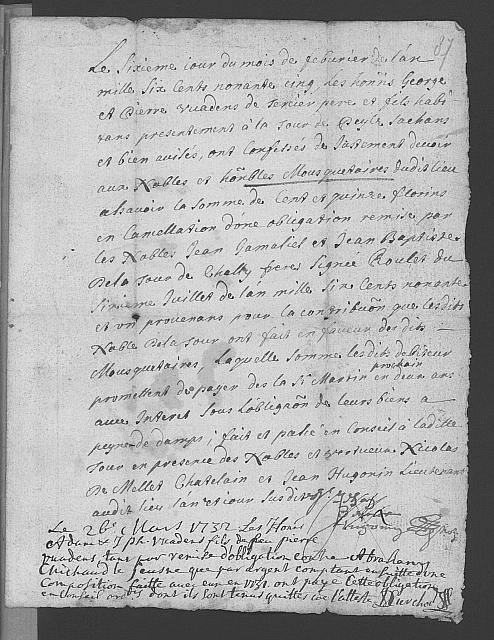 87
Le Sixieme iour du mois de feburier de l'an
mille Six Cents nonante Cinq, Les honn's George
et Pierre vuadens de pere et fils habi-
tans presentement à la Tour de Peyle Sachans
et bien avisés, ont Confesses de Iustement devoir
aux Nobles et hõnbles Mousquetaires dudit lieu
assavoir la Somme de Cent et quinze florins
en d'une obligation remise par
les Nobles Jean Jamaliel et Jean Baptiste
De la Tour de freres Signée Roulet du
Sixieme Juillet de l'an mille Six Cents nonante
et un provenans pour la contribuõn que lesdits
Nobles De la Tour ont fait en faveur desdits
Mousquetaires, Laquelle Somme lesdits debiteur
promettent de payer des la St Martin prochain en deux ans
avec Interet Sous l'obligaõn de leurs biens a
peyne de damps; fait et passé en Conseil à ladite
Tour en presence des Nobles et vertueux Nicolas
De Mellet Chatelain et Jean Hugonin Lieutenant
audit lieu l'an et iour Susdit
Le 26e Mars 1732 Les Hon's
Adam et vuadens fils de feu pierre
vuadens, tant par remise d'obligation contre Abraham
Chichaud le Jeusne que par argent Comptant en Suitte d'une
Composition faitte avec eux en 1731 ont payé Cette obligation
en Conseil dont ils Sont tenus quittes